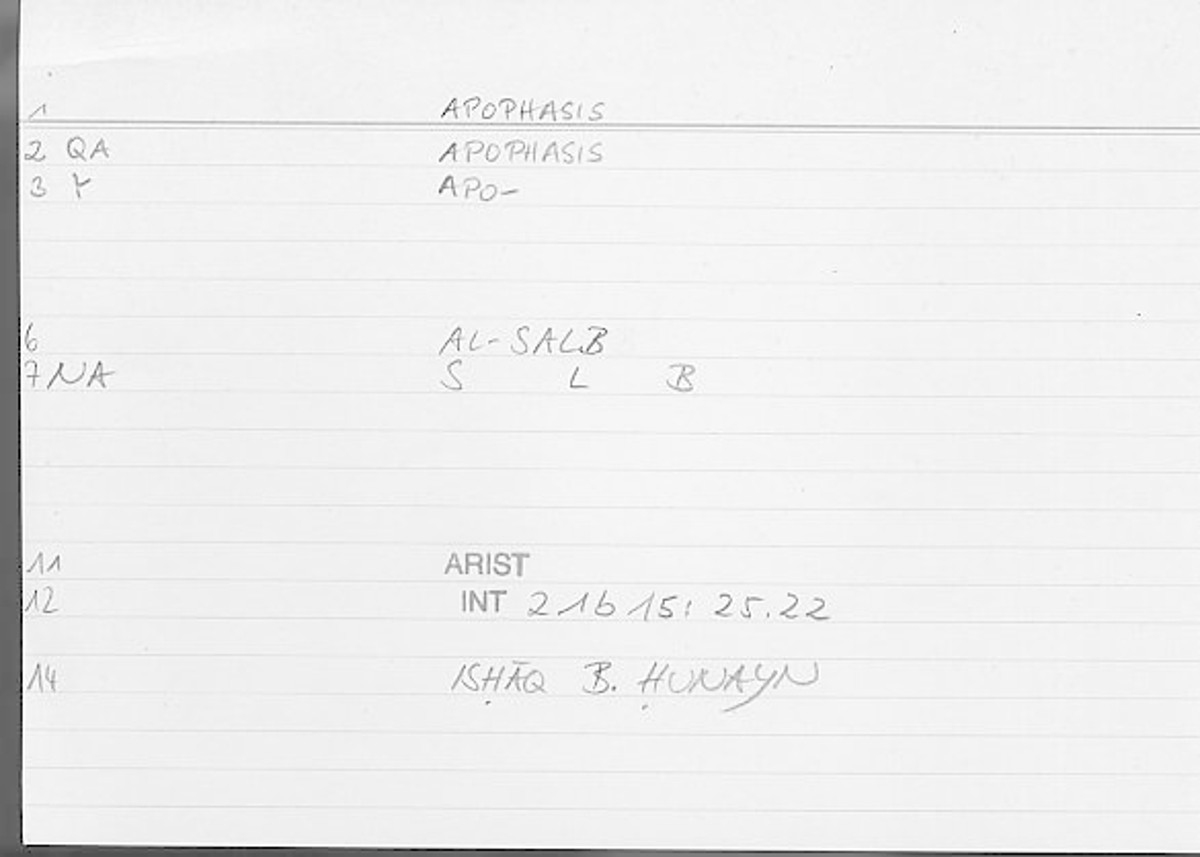 1 APOPHASIS
2 QA APOPHASIS
3 Y APO-
6 AL-SALB
7 NA S L B
11 ARIST
12 INT 21b 15; 25.22
14 ISḤĀQ B. ḤUNAYN